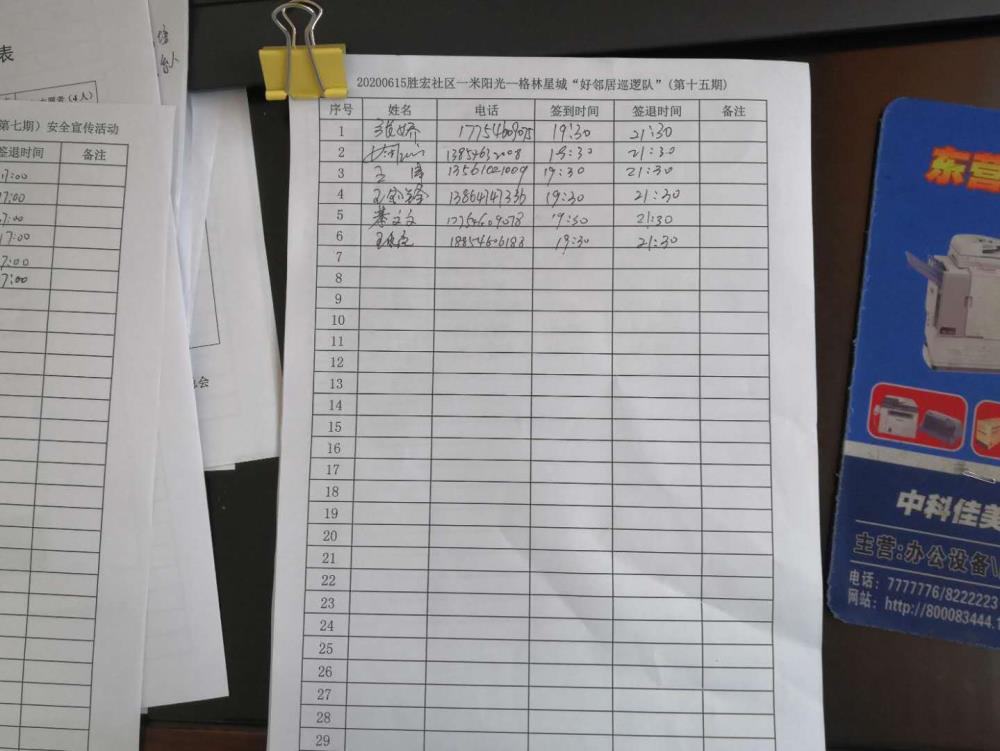 表
（4人）
第七期）安全宣传活动
签退时间 备注
17:00
17:00
17:00
17:00
17:00
17:00
20200615胜宏社区一米阳光一格林星城“好邻居巡逻队”(第十五期)
序号 姓名 电话 签到时间 签退时间 备注
1 张娇 17754609075 19:30 21:30
2 19:30 21:30
3 王涛 13561021009 19:30 21:30
4 13864747336 19:30 21:30
5 文文 17754609078 19:30 21:30
6 18854606188 19:30 21:30
7
8
9
10
11
12
13
14
15
16
17
18
19
20
21
22
23
24
25
26
27
28
29
东营
中科佳美
主营:办公设备\
电话: 7777776/8222223
网站: http://800083444.